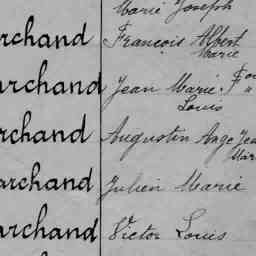 Marie Joseph
rchand François Albert
Marie
archand Jean Marie
Louis
rchand Augustin Ange Jea
Mar
archand Julien Marie
archand Victor Louis